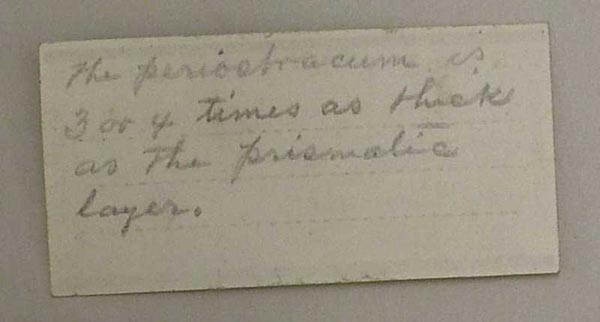 The periostracum is
3 or 4 times as thick
as the prismatic
layer.